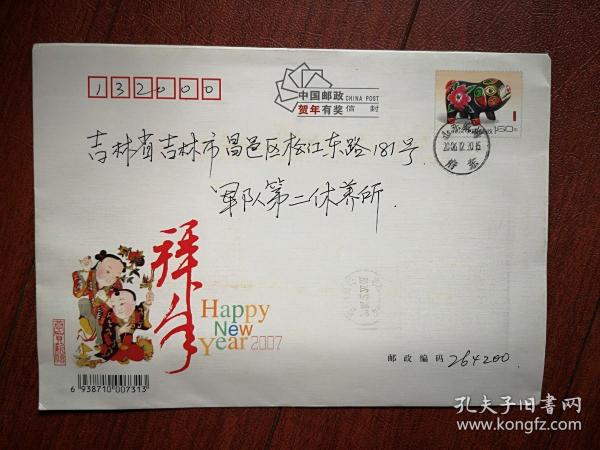 132000
中国邮政 CHINA POST
贺年有奖 信封
160分
2006.12.20.15
吉林省吉林市昌邑区松江东路181号
军队第二休养所.
拜年
Happy
New
Year 2007
邮政编码 264200
6 938710 007313
孔夫子旧书网
www.kongfz.com